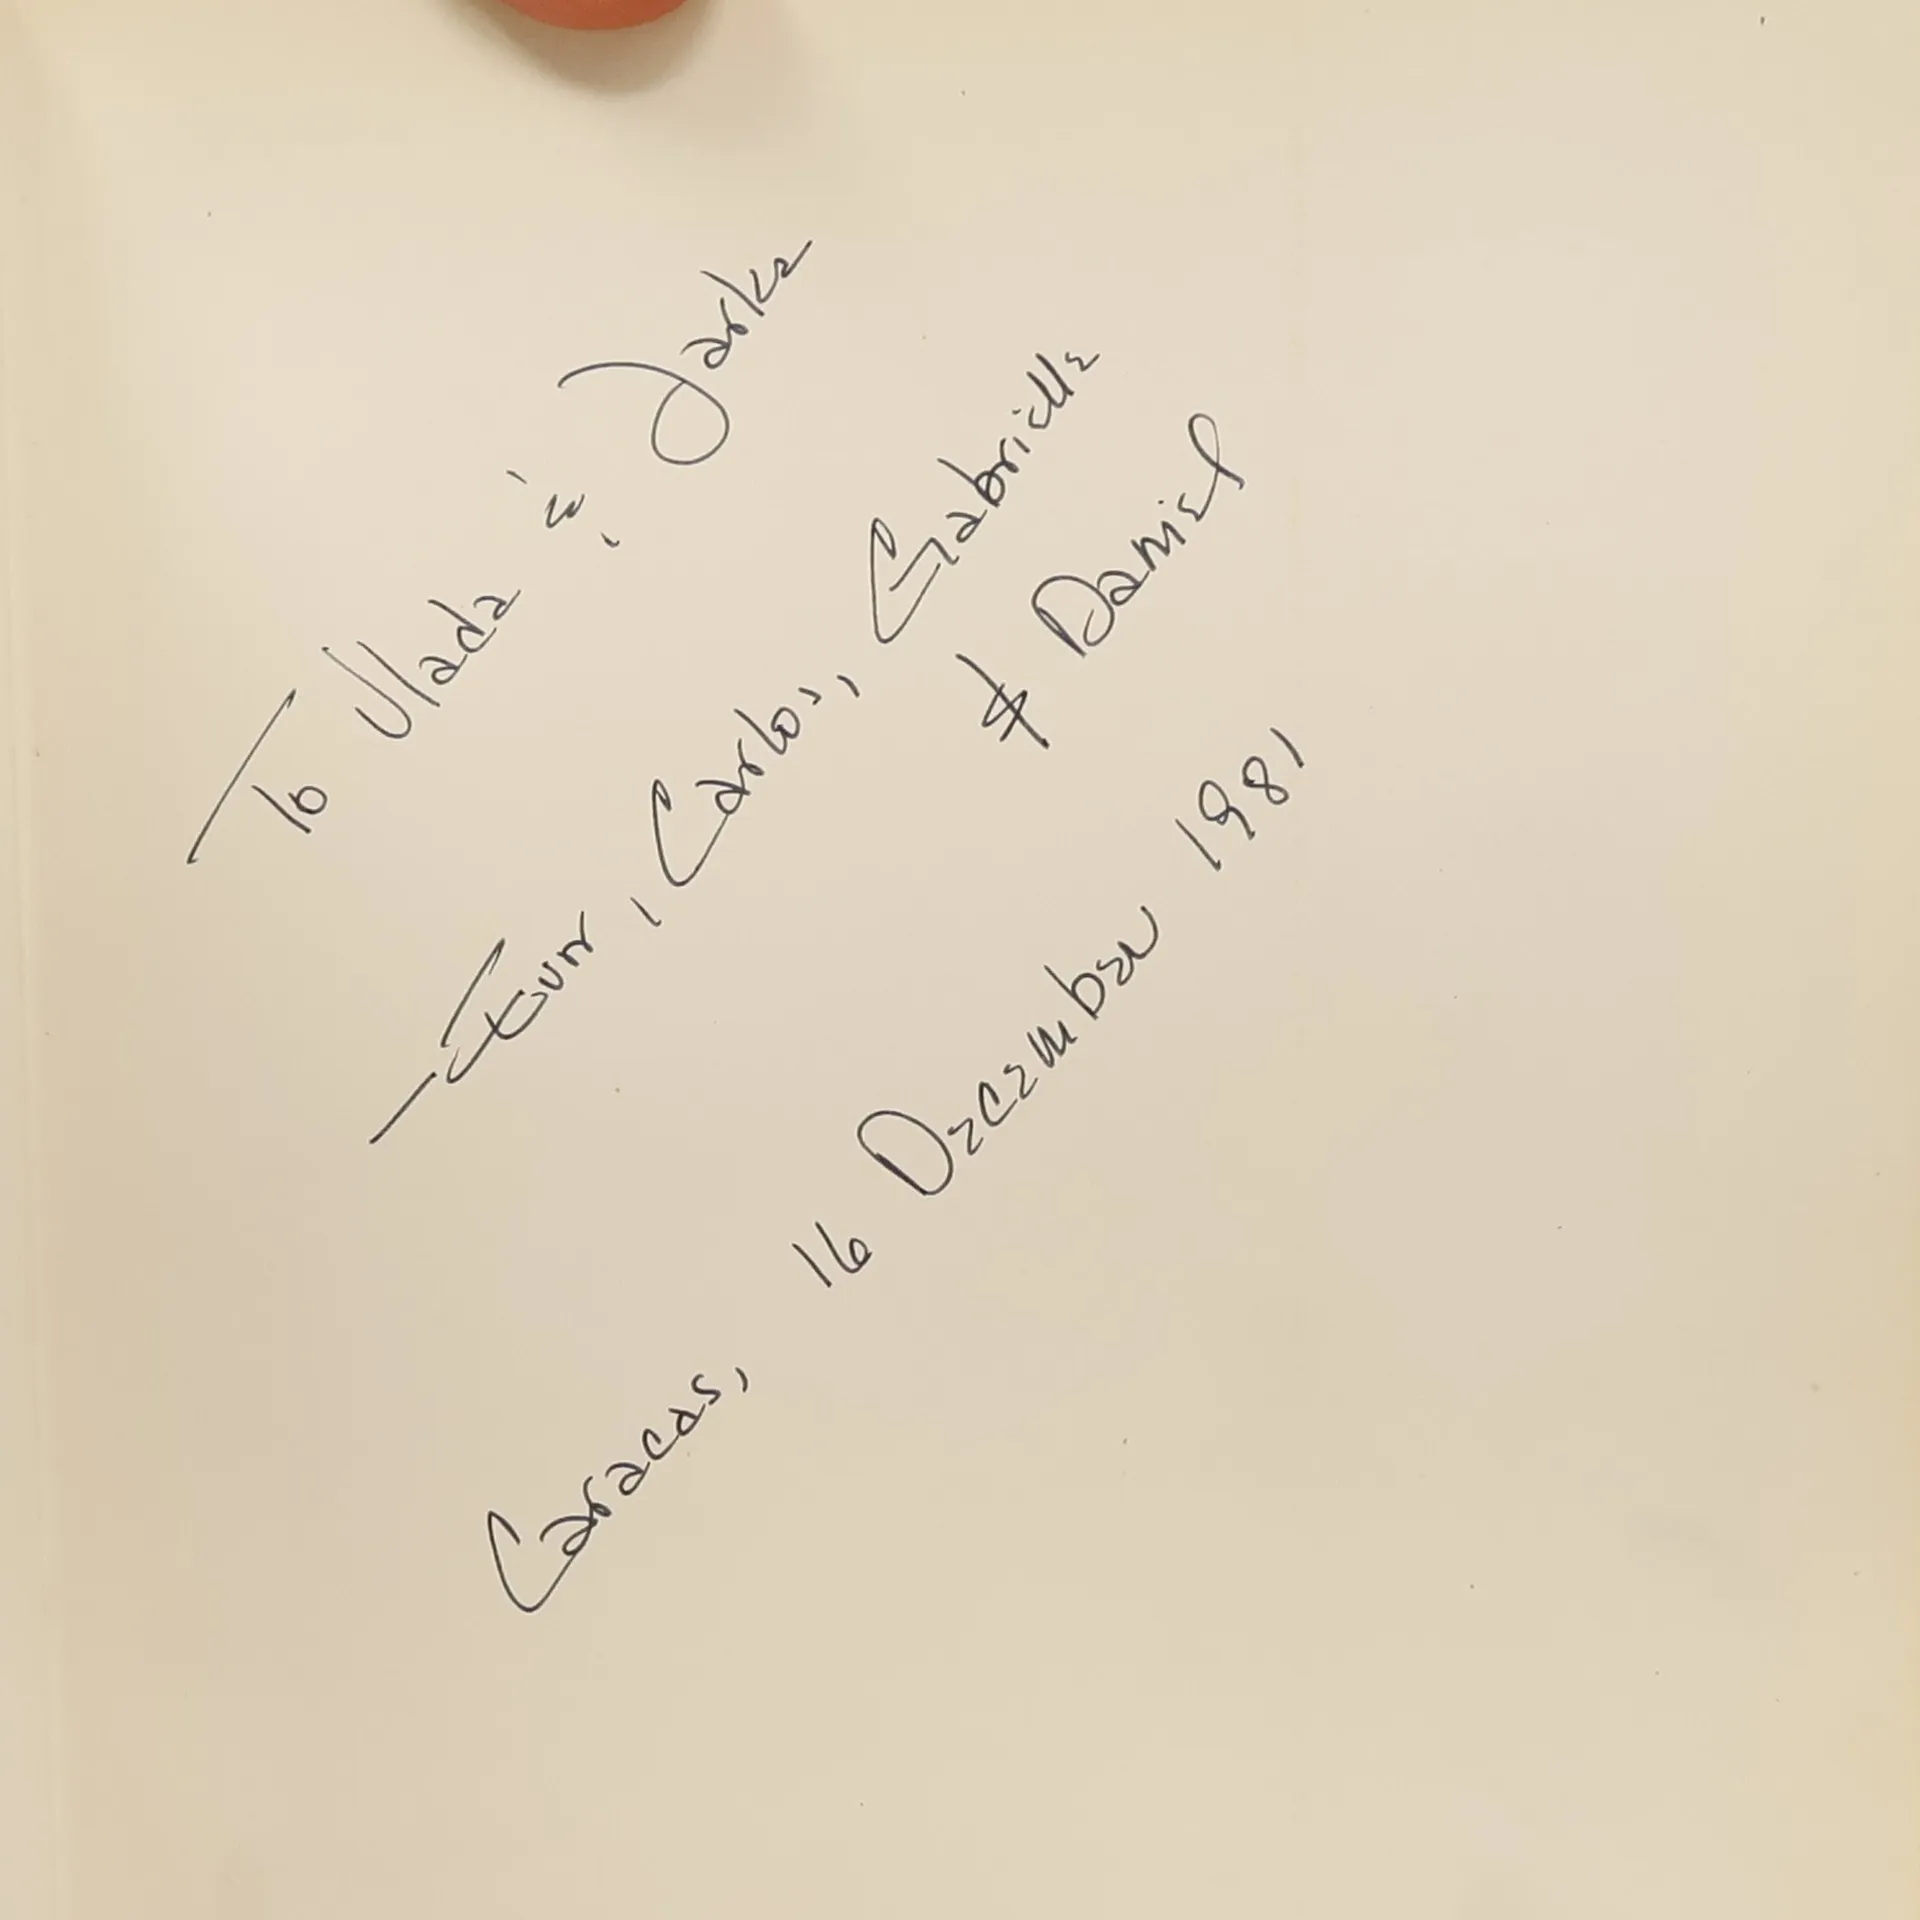 To Vlada & Jarka
Carlos, Gabrielle
& Daniel
Caracas, 16 December 1981